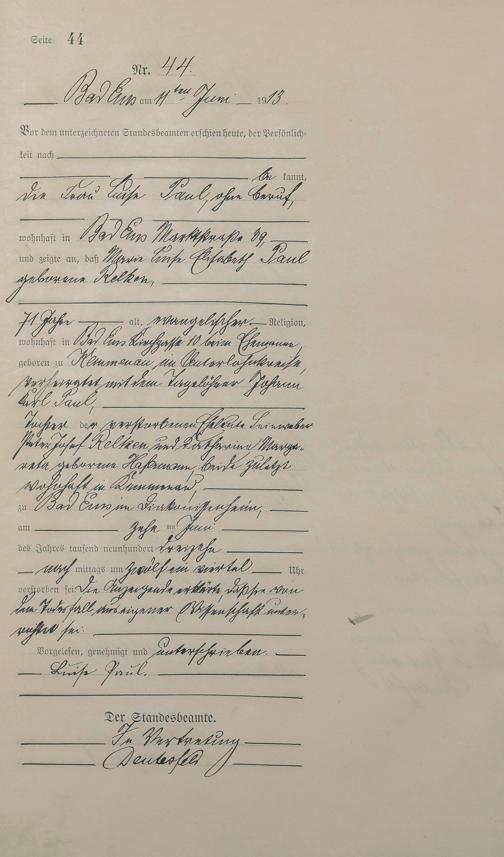 Seite 44
Nr. 44.
Bad Ems am 11ten Juni 1913.
Vor dem unterzeichneten Standesbeamten erschien heute, der Persönlich-
keit nach
be kannt,
die Frau Luise Paul, ohne Beruf,
wohnhaft in Bad Ems Marktstraße 39,
und zeigte an, daß Marie Luise Elisabeth Paul
geborene Relken,
71 Jahre alt, evangelischer Religion,
wohnhaft in Bad Ems Kirchgasse 10 beim Ehemanne,
geboren zu Kemmenau, im Unterlahnkreise,
verheiratet mit dem Tagelöhner Johann
Karl Paul,
Tochter der verstorbenen Eheleute Leineweber
Peter Josef Relken, und Katharina Marga-
reta, geborene, beide zuletzt
wohnhaft in Kemmenau,
zu Bad Ems im Diakonissenheim,
am zehn ten Juni
des Jahres tausend neunhundert dreizehn
nach mittags um zwölf ein viertel Uhr
verstorben sei. Die Anzeigende erklärte, daß sie von
dem Todesfall aus eigener Wissenschaft unter-
richtet sei.
Vorgelesen, genehmigt und unterschrieben.
Luise Paul.
Der Standesbeamte.
In Vertretung